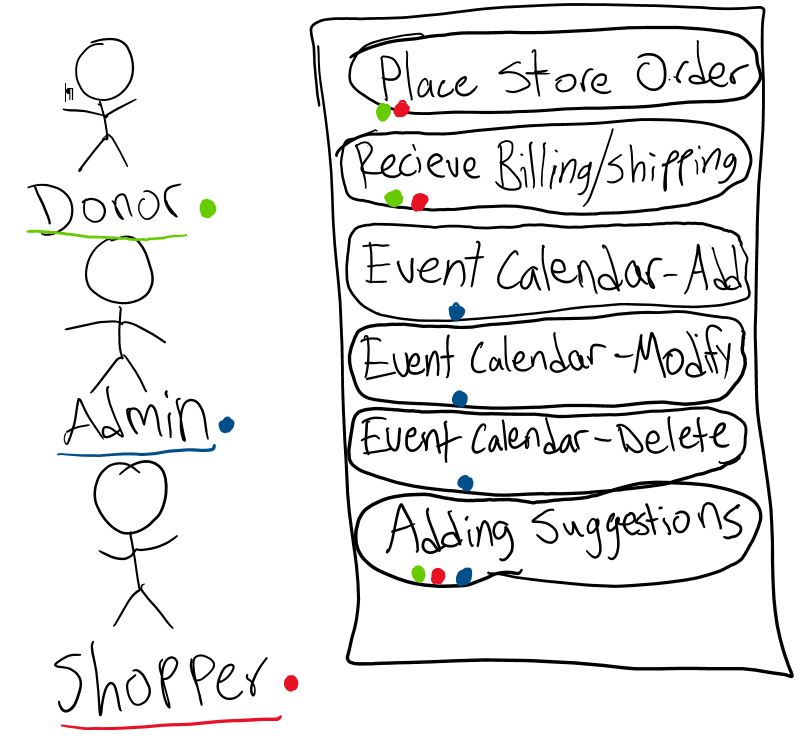 Donor
Admin
Shopper
Place Store Order
Recieve Billing/Shipping
Event Calendar-Add
Event Calendar-Modify
Event Calendar-Delete
Adding Suggestions